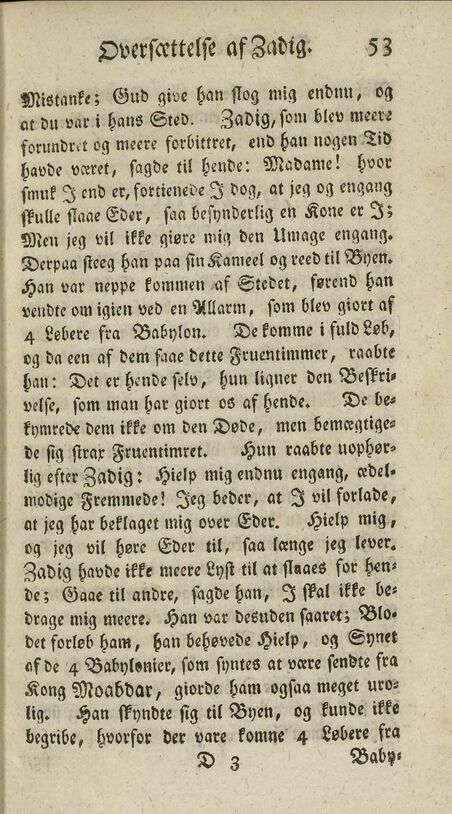 Oversættelse af Zadig. 53
Mistanke; Gud give han slog mig endnu, og
at du var i hans Sted. Zadig, som blev meere
forundret og meere forbittret, end han nogen Tid
havde været, sagde til hende: Madame! hvor
smuk J end er, fortienede J dog, at jeg og engang
skulle slaae Eder, saa besynderlig en Kone er J;
Men jeg vil ikke giøre mig den Umage engang.
Derpaa steeg han paa sin Kameel og reed til Byen.
Han var neppe kommen af Stedet, førend han
vendte om igien ved en Allarm, som blev giort af
4 Løbere fra Babylon. De komme i fuld Løb,
og da een af dem saae dette Fruentimmer, raabte
han: Det er hende selv, hun ligner den Beskri-
velse, som man har giort os af hende. De be-
kymrede dem ikke om den Døde, men bemægtige-
de sig strax Fruentimret. Hun raabte uophør-
lig efter Zadig: Hielp mig endnu engang, ædel-
modige Fremmede! Jeg beder, at J vil forlade,
at jeg har beklaget mig over Eder. Hielp mig,
og jeg vil høre Eder til, saa længe jeg lever.
Zadig havde ikke meere Lyst til at slaaes for hen-
de; Gaae til andre, sagde han, J skal ikke be-
drage mig meere. Han var desuden saaret; Blo-
det forløb ham, han behøvede Hielp, og Synet
af de 4 Babylonier, som syntes at være sendte fra
Kong Moabdar, giorde ham ogsaa meget uro-
lig. Han skyndte sig til Byen, og kunde ikke
begribe, hvorfor der vare komne 4 Løbere fra
D 3 Baby-